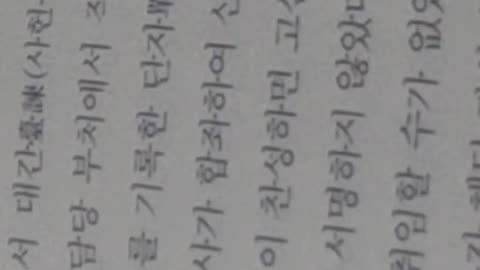 서 대간臺諫(사헌
담당 부처에서
를 기록한 단자
사가 합좌하여
이 찬성하면 고
서명하지 않았다
취임할 수가 없